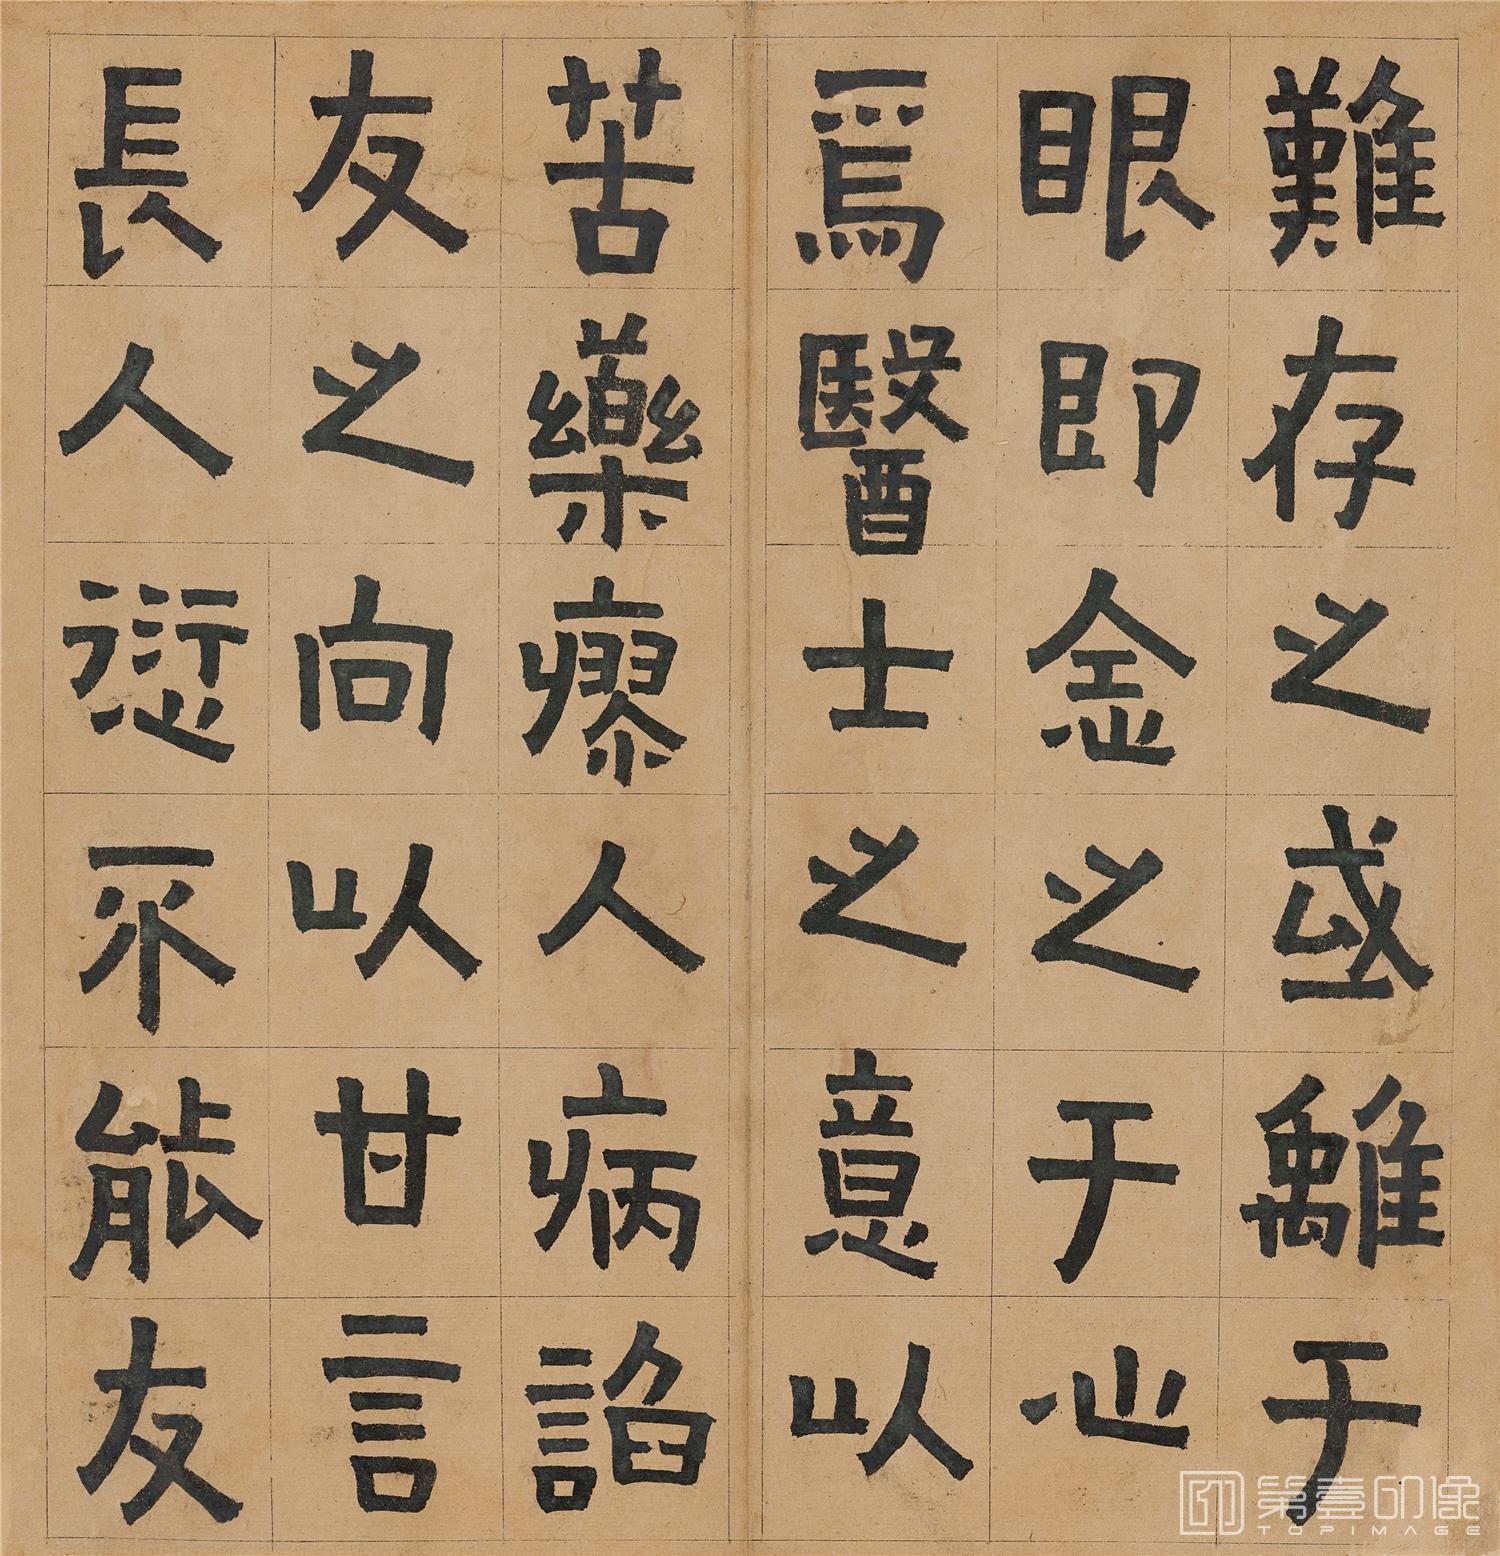 難存之或離于
眼即念之于心
爲醫士之意以
苦藥瘳人病諂
友之向以甘言
長人愆不能友
第壹印像
TOPIMAGE